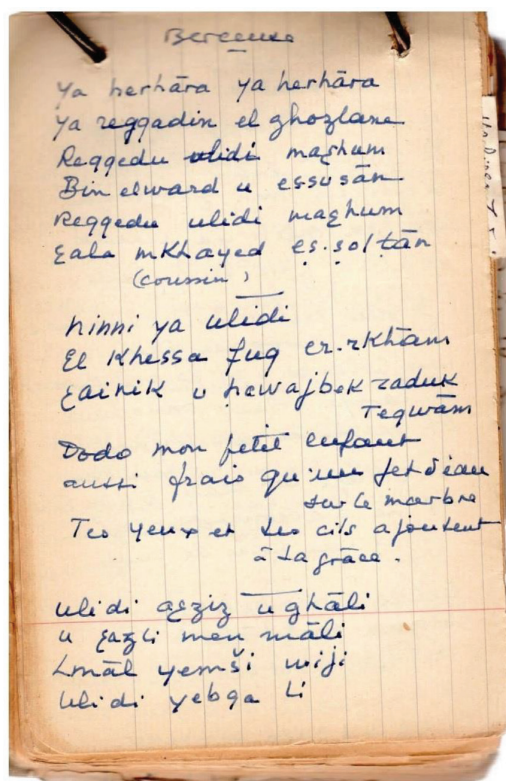 Berceuse
Ya herhāra ya herhāra
Ya reggadin el ghozlane
Reggedu ulidi maɛhum
Bin elward u essusān
Reggedu ulidi maɛhum
ɛala mkhayed eṣ.ṣolṭān
(coussin)
Ninni ya ulidi
El Khessa fuq er.rkhām
ɛainik u ḥawajbek zaduk
Teqwām
Dodo mon petit enfant
aussi frais qu'un jet d'eau
sur le marbre
Tes yeux et tes cils ajoutent
à ta grâce.
ulidi aɛziz u ghāli
u ɛazli men māli
Lmāl yemši wiji
Ulidi yebqa li